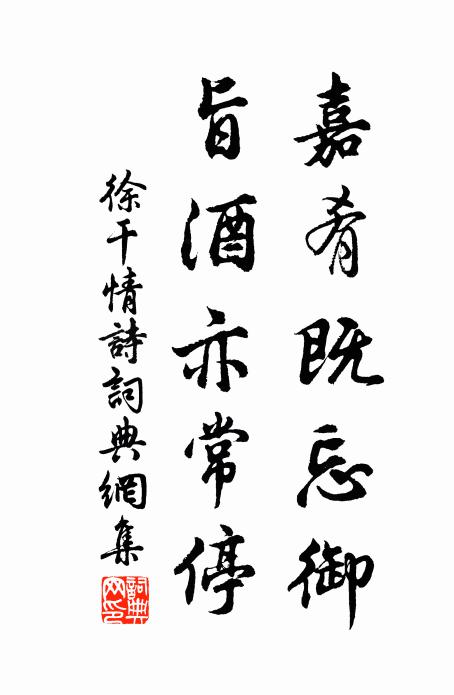 嘉肴既忘御
旨酒亦常停
徐干情詩詞典網集
詞典網印